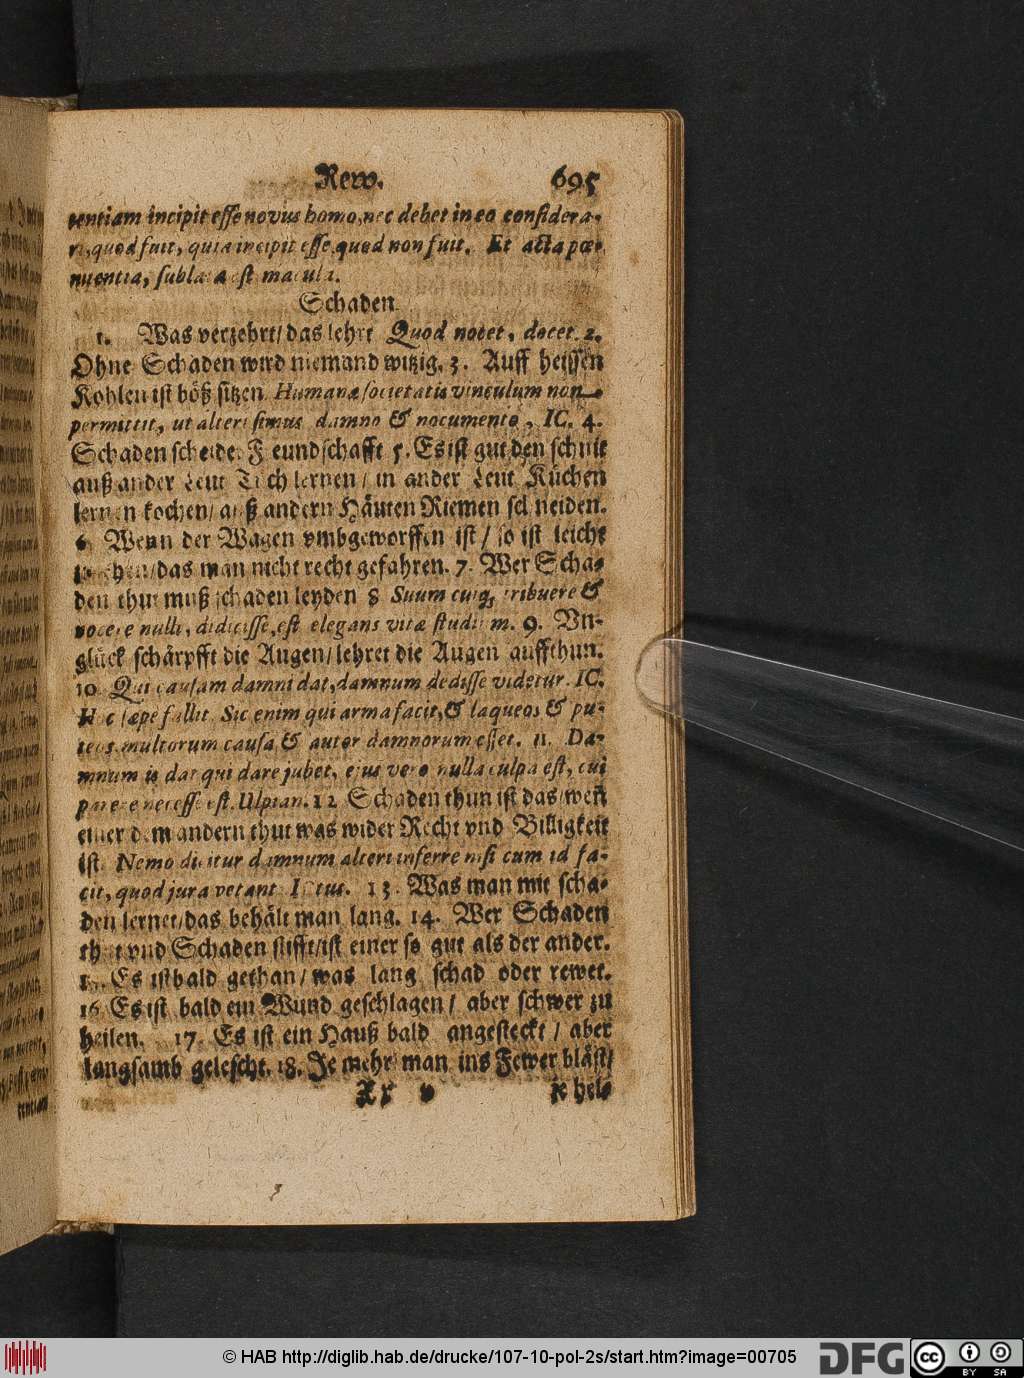 Rew. 695
tentiam incipit esse novus homo, nec debet in eo considera-
ri, quod fuit, quia incipit esse quod non fuit. Et acta pœ-
nitentia, sublata est macula.
Schaden
1. Was verzehrt/ das lehrt Quod nocet, docet. 2.
Ohne Schaden wird niemand witzig. 3. Auff heissen
Kohlen ist böß sitzen. Humanæ societatis vinculum non
permittit, ut alteri simus damno & nocumento, IC. 4.
Schaden scheidet Freundschafft 5. Es ist gut den schnit
auß ander Leut Tuch lernen/ in ander Leut Küchen
lernen kochen/ auß andern Häuten Riemen schneiden.
6. Wenn der Wagen vmbgeworffen ist/ so ist leicht
das man nicht recht gefahren. 7. Wer Scha-
den thut muß schaden leyden 8 Suum cuiq; tribuere &
nocere nulli, didicisse, est elegans vitæ studium. 9. Vn-
glück schärpfft die Augen/ lehret die Augen auffthun.
10 Qui causam damni dat, damnum dedisse videtur. IC.
Hoc sæpe fallit. Sic enim qui arma facit, & laqueos & pu-
teos multorum causa, & autor damnorum esset. 11. Da-
mnum is dat qui dare jubet, ejus vero nulla culpa est, cui
parere necesse est. Ulpian. 12 Schaden thun ist das/ wen
einer dem andern thut was wider Recht vnd Billigkeit
ist. Nemo dicitur damnum alteri inferre nisi cum id fa-
cit, quod jura vetant. Ictus. 13. Was man mit scha-
den lernet/ das behält man lang. 14. Wer Schaden
thut vnd Schaden stifft/ ist einer so gut als der ander.
15. Es ist bald gethan/ was lang schad oder rewet.
16 Es ist bald ein Wund geschlagen/ aber schwer zu
heilen. 17. Es ist ein Hauß bald angesteckt/ aber
langsamb gelescht. 18. Je mehr man ins Fewer bläst/
Xx v je hel-
3
© HAB http://diglib.hab.de/drucke/107-10-pol-2s/start.htm?image=00705
DFG
cc
BY SA